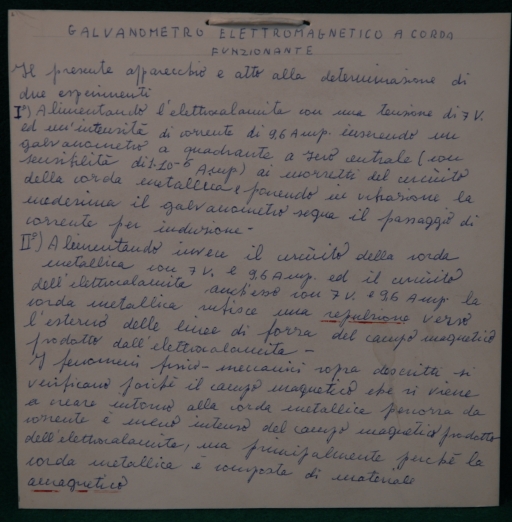 GALVANOMETRO ELETTROMAGNETICO A CORDA
FUNZIONANTE
Il presente apparecchio è atto alla determinazione di
due esperimenti
I°) Alimentando l'elettrocalamita con una tensione di 7 V.
ed un'intensità di corrente di 9,6 Amp. inserendo un
galvanometro a quadrante a zero centrale (con
sensibilità di 1·10-6 Amp) ai morsetti del circuito
della corda metallica e ponendo in vibrazione la
medesima il galvanometro segna il passaggio di
corrente per induzione-
II°) Alimentando invece il circuito della corda
metallica con 7 V. e 9,6 Amp. ed il circuito
dell'elettrocalamita anch'esso con 7 V. e 9,6 Amp. la
corda metallica subisce una repulsione verso
l'esterno delle linee di forza del campo magnetico
prodotto dall'elettrocalamita -
I fenomeni fisico-meccanici sopra descritti si
verificano poichè il campo magnetico che si viene
a creare intorno alla corda metallica percorsa da
corrente è meno intenso del campo magnetico prodotto
dell'elettrocalamita, ma principalmente perchè la
corda metallica è composta di materiale
amagnetico